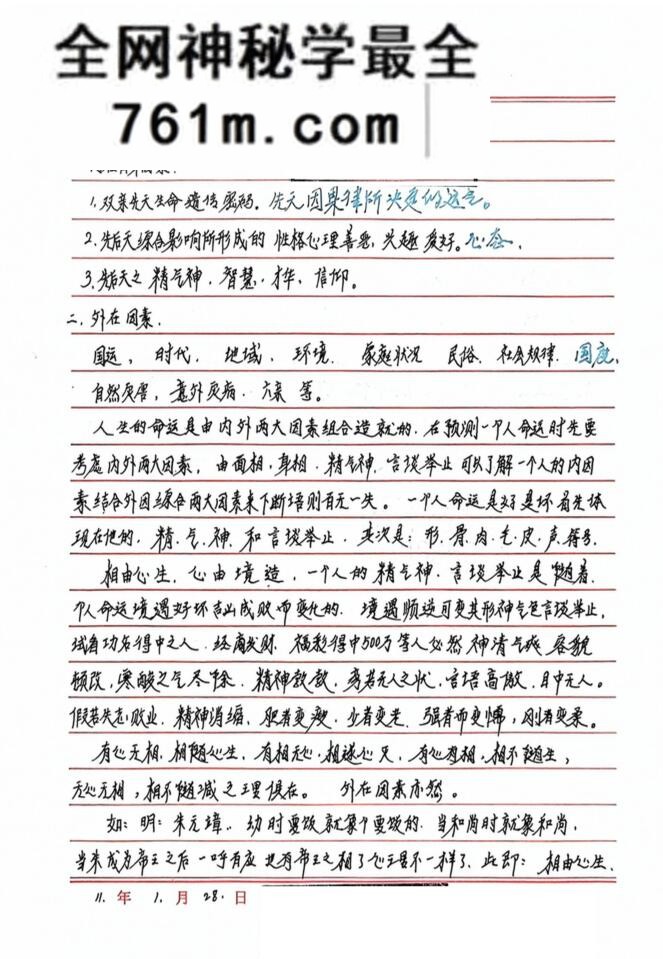 全网神秘学最全
761m.com
1.双亲先天生命遗传密码。先天因果律所决定的运气。
2.先后天综合影响所形成的性格心理善恶,兴趣爱好。心态.
3.先后天之精气神.智慧.才华.信仰。
二.外在因素.
国运,时代,地域,环境.家庭状况 民俗.社会规律.国度,
自然灾害,意外灾病.六亲等。
人生的命运是由内外两大因素组合造就的.在预测一个人命运时先要
考虑内外两大因素,由面相.身相.精气神.言谈举止可以了解一个人的内因
素结合外因综合两大因素来下断语则百无一失。一个人命运是好是坏首先体
现在他的.精.气.神.和言谈举止.其次是:形.骨.肉.毛.皮.声.等.
相由心生.心由境造,一个人的精气神.言谈举止是随着.
个人命运境遇好坏吉凶成败而变化的.境遇顺逆可变其形神气色言谈举止,
试看功名得中之人.经商发财.福彩得中500万等人必然神清气爽 容貌
顿改,寒酸之气尽除.精神散散.旁若无人之状,言语高傲.目中无人。
假若失志败业.精神消缩.肥者变瘦.少者变老.强者而变懦,刚者变柔。
有心无相.相随心生,有相无心.相逐心灭.有心有相.相不随生,
无心无相,相不随灭之理俱在。外在因素亦然。
如:明:朱元璋..幼时要饭就象个要饭的.当和尚时就象和尚,
当来成为帝王之后一呼百应也有帝王之相了心王是不一样了.此即:相由心生.
11.年 1.月 28.日